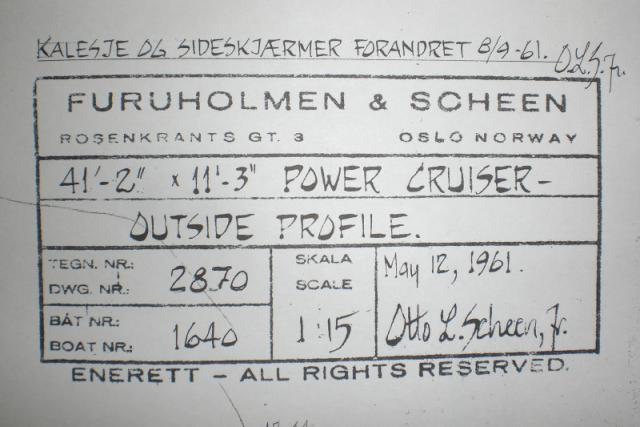 KALESJE OG SIDESKJÆRMER FORANDRET 8/9-61. O.L.S. Jr.
FURUHOLMEN & SCHEEN
ROSENKRANTS GT. 3 OSLO NORWAY
41'-2" x 11'-3" POWER CRUISER-
OUTSIDE PROFILE.
TEGN. NR.:
DWG. NR.:
2870
BÅT NR.:
BOAT NR.:
1640
SKALA
SCALE
1:15
May 12, 1961.
Otto L. Scheen, Jr.
ENERETT - ALL RIGHTS RESERVED.